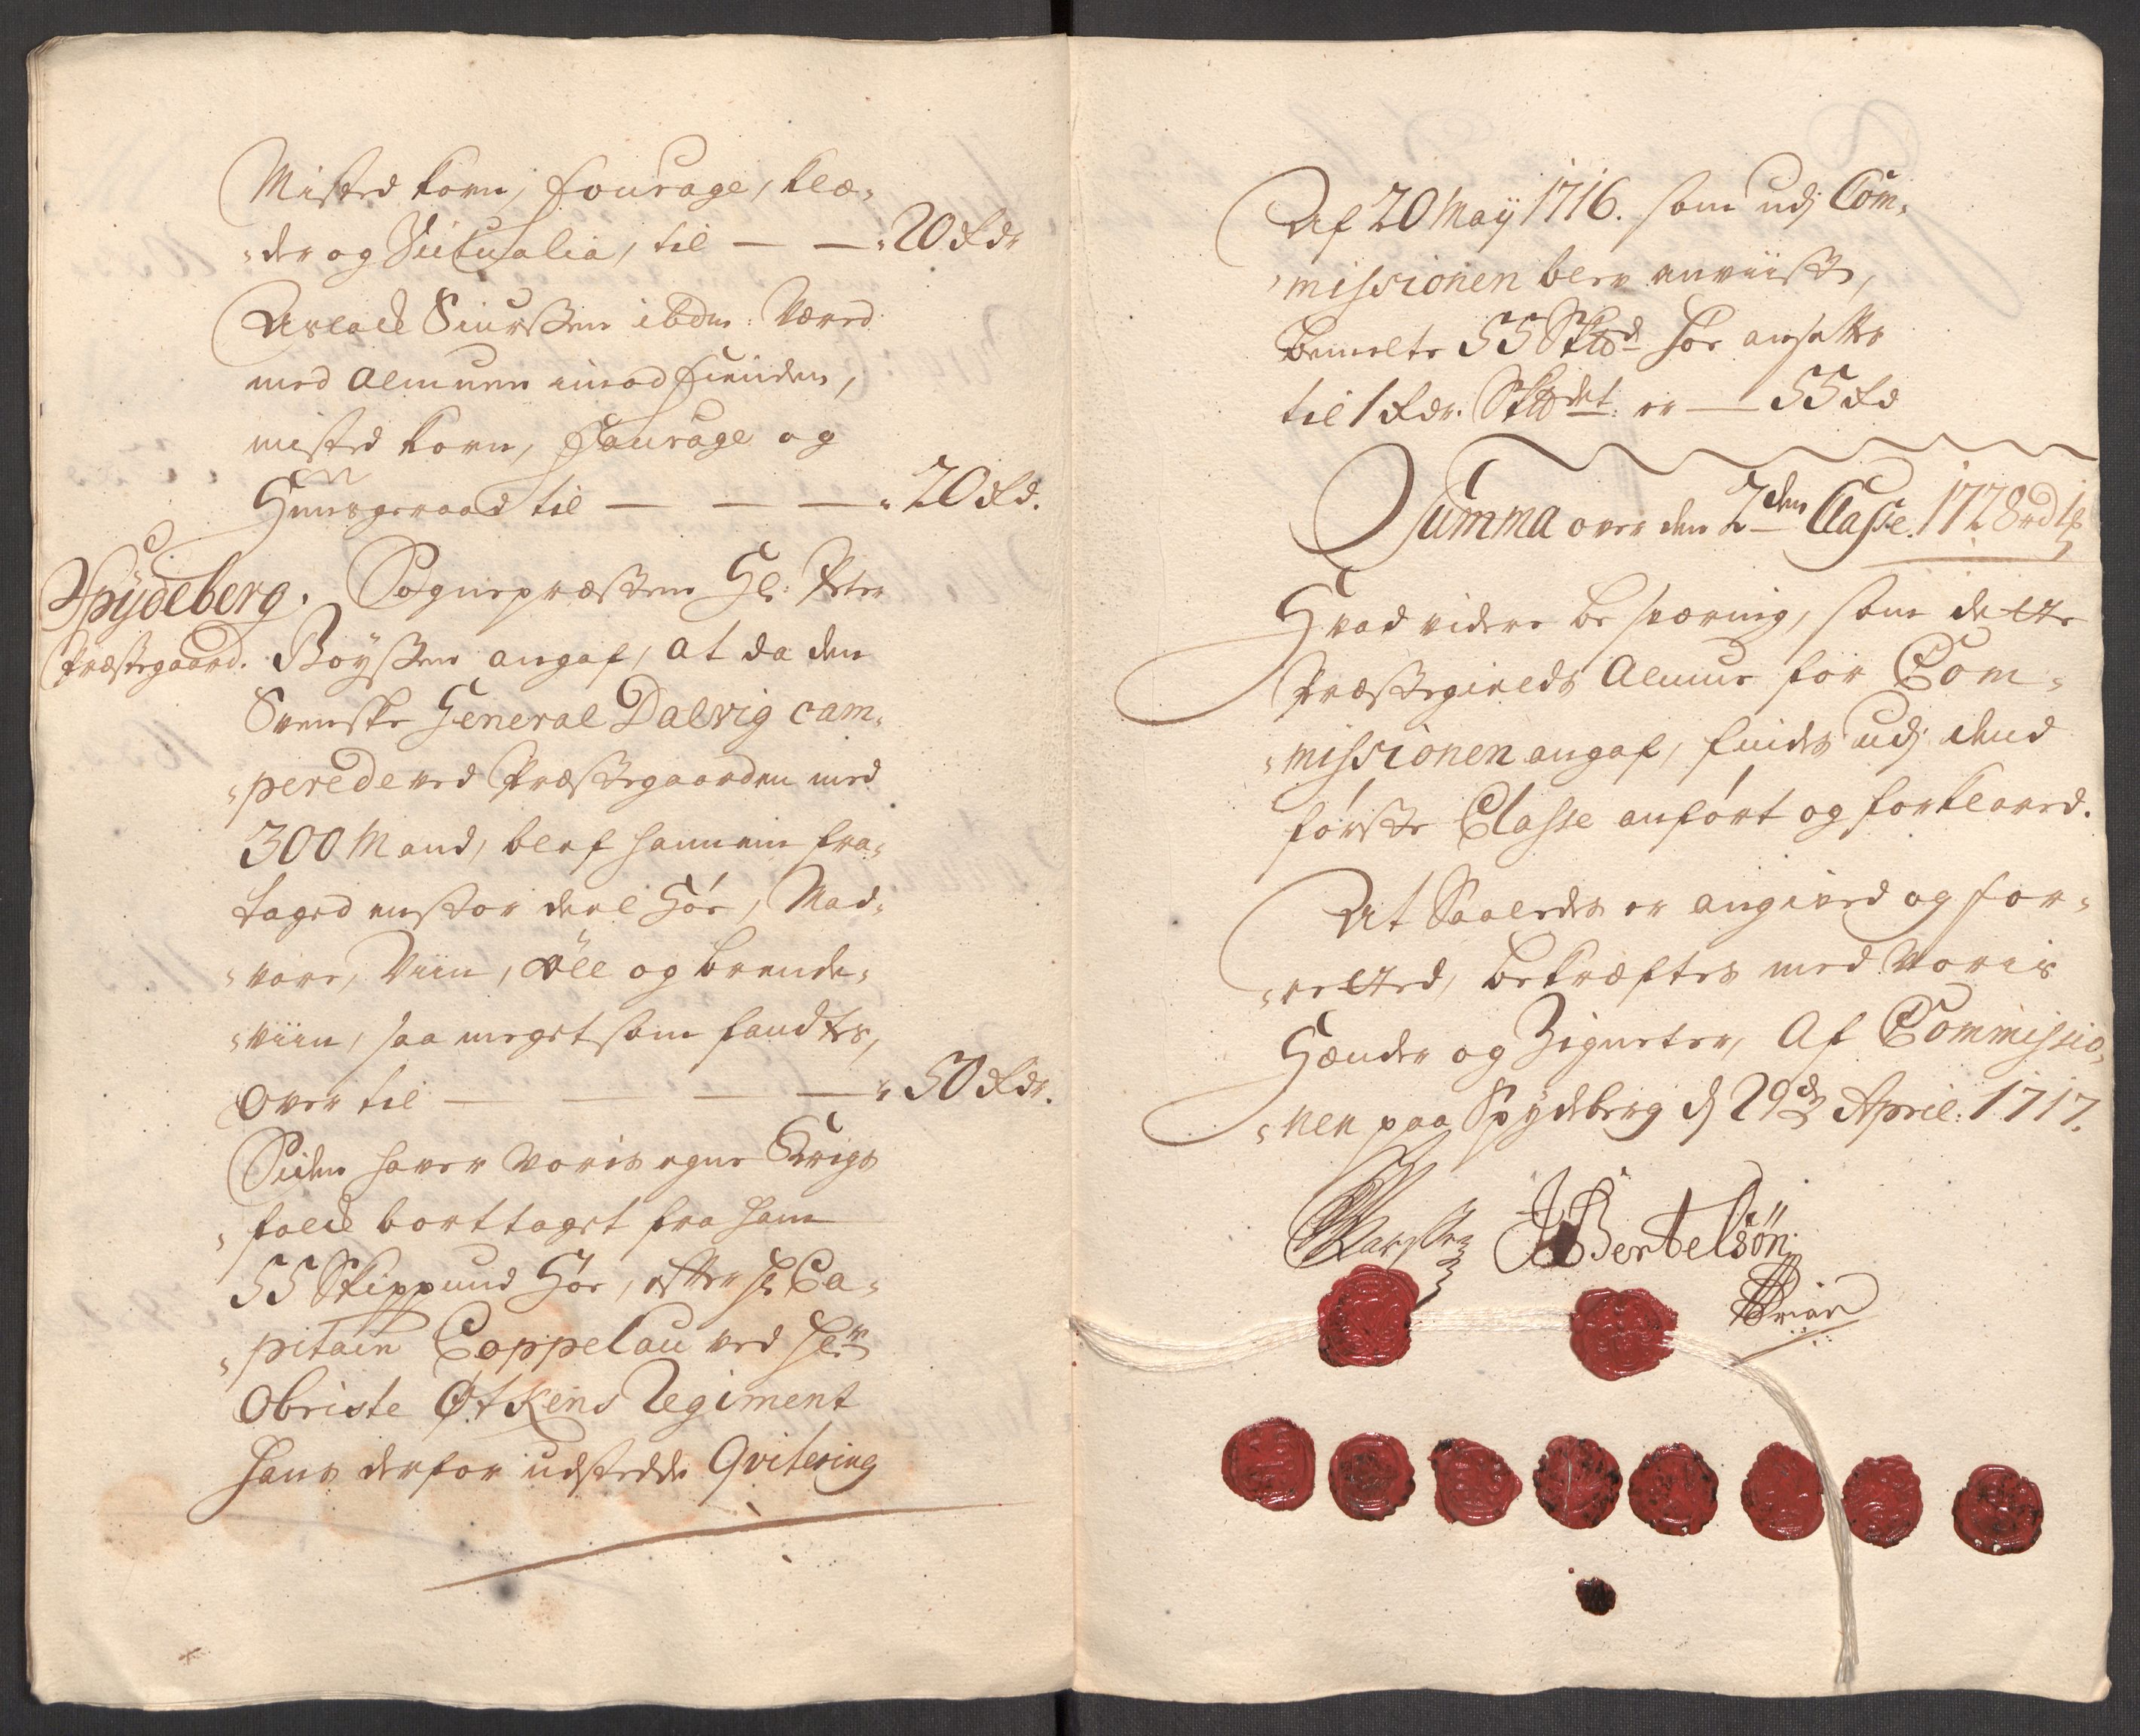 Misted korn, fourage, klæ-
-der og Victualia, til — — 20 Rdr
Aslach Siurssen ibdm: Wæred
med Almuen imod fienden,
misted korn, fourage og
Huusgeraad til — — — 20 Rd.
Spydeberg. Sognepræsten Hr: Peter
Præstegaard. Boyssen angaf, at da den
Svenske General Dalvig cam-
-perede ved Præstegaarden med
300 Mand, blef hannem fra-
taged en stor deel Høe, Mad-
-vare, Viin, Øll og brende-
-viin, saa meget som fandtes,
Over til — — — — 50 Rdr.
Siden haver voris egne Krigs
-folck borttaget fra ham
55 Skippund Høe, efter Hr Ca-
-pitain Coppelau ved Hr:
Obriste Øtkens Regiment
Hans derfor udstedde Qvitering
Af 20 Maij 1716. som udj Com-
-missionen blev anviist,
bemelte 55 Skpd Høe ansettes
til 1 Rdr. Skpdet: er — 55 Rd
Summa over den 2den Classe. 1728 rd
Hvad videre besværing, som dette
Præstegields Almue for Com-
-missionen angaf, findes udj dend
første Classe anført og forklared.
At Saaledes er angived og for-
-retted, bekræftes med Voris
Hænder og Zigneter, Af Commissio-
-nen paa Spydeberg d 29de April: 1717.
JBertelsøn